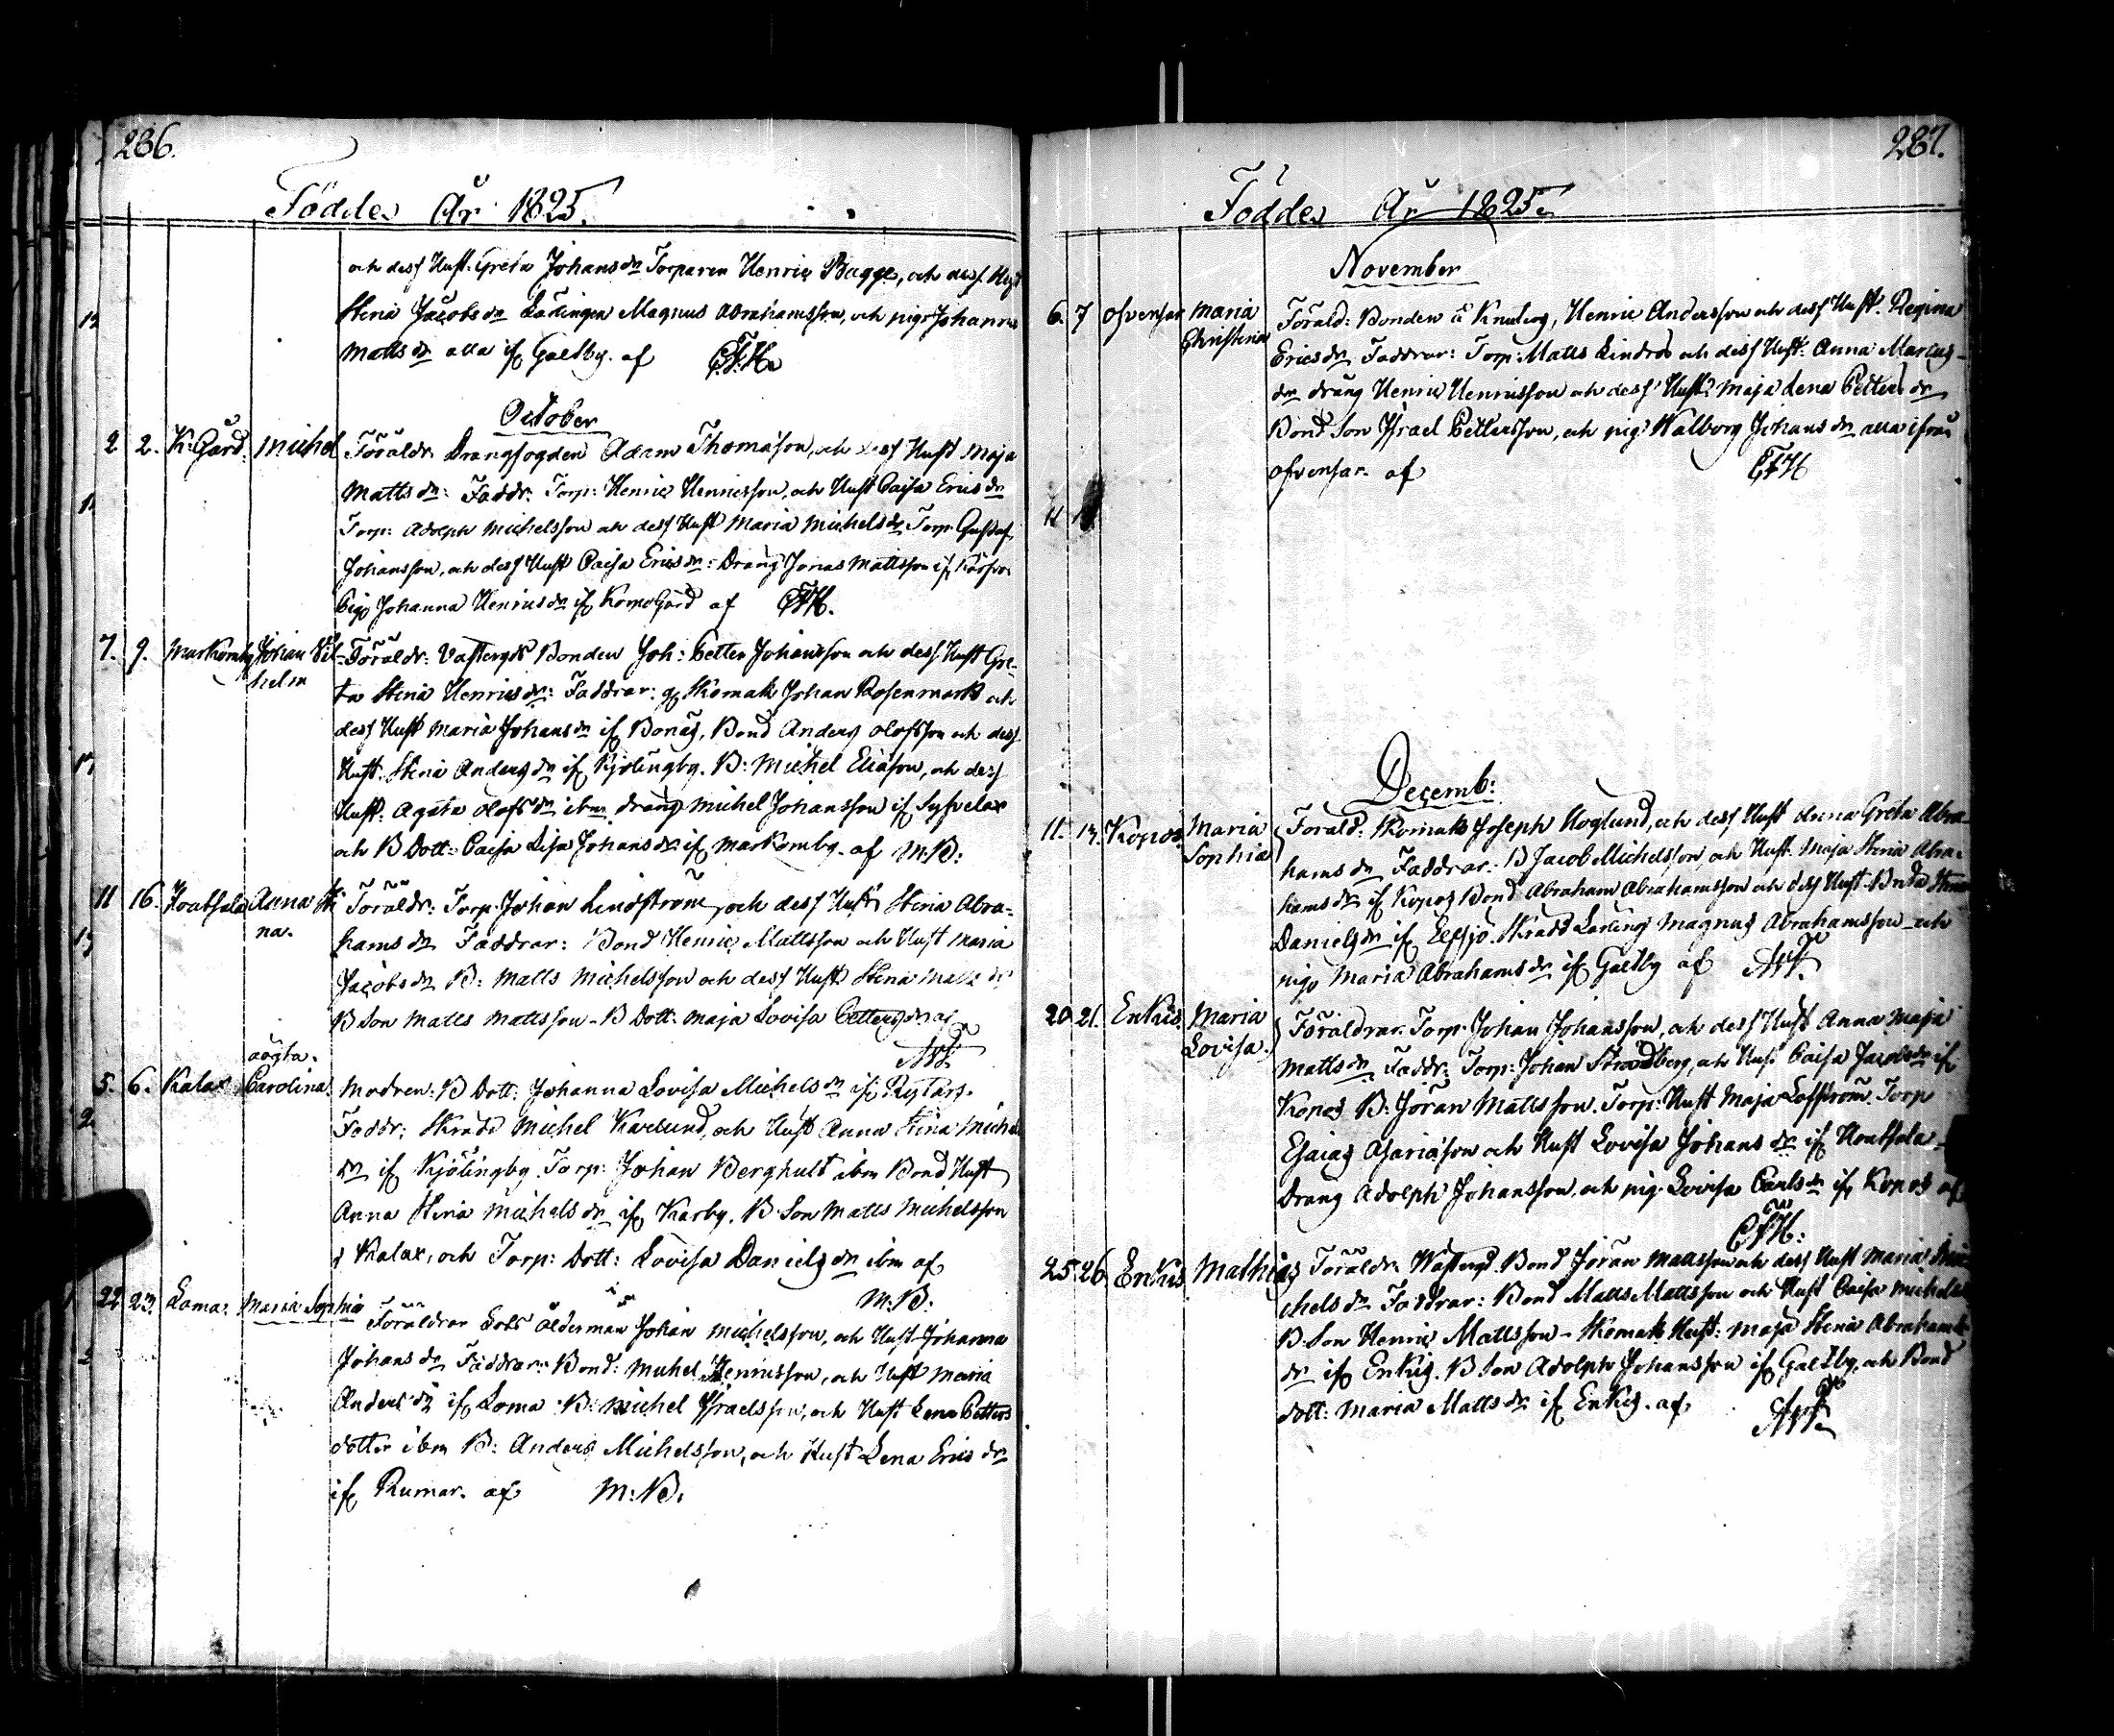 236.
Föddes År 1825.
och dess Hust. Greta Johans dr Torparen Henric Bagge, och dess Hust
Stina Jacobs dr Lärlingen Magnus Abrahamsson, och pig. Johanna
Matts dr alla if Galtby. af C.F.H.
October
2 2. K. Gård. Michel Föräldr. Drängfogden Adam Thomasson, och dess Hust Maja
Matts dr: Faddr. Torp: Henric Henricsson, och Hust Caisa Erics dr
Torp: Adolph Michelsson och dess Hust Maria Michels dr Torp. Gustaf
Johansson, och dess Hust Caisa Erics dr: Dräng Jonas Mattsson if
Pig. Johanna Henrics dr if KorpoGård af CFH.
7. 9. Markomby Johan Vil- Föräldr: Bonden Joh: Petter Johansson och dess Hust Gre-
helm ta Stina Henrics dr: Faddrar: Skomak Johan Rosenmark och
dess Hust Maria Johans dr if Bonäs, Bond Anders Olofsson och dess
Hust. Stina Anders dr if Kjölingby. B: Michel Eliasson, och dess
Hust. Agata Olofs dr ibm dräng Michel Johansson if Syfvelax
och B Dott: Caisa Lisa Johans dr if Markomby. af M:B:
11 16. Houtsala Anna Sti Föräldr: Torp. Johan Lindström, och dess Hust Stina Abra-
na. hams dr Faddrar: Bond Henric Mattsson och Hust Maria
Jacobs dr B: Matts Michelsson och dess Hust Stina Matts dr
B Son Matts Mattsson - B Dott: Maja Lovisa Petters dr af
oägta.
5. 6. Kalax Carolina. Modren: B Dott: Johanna Lovisa Michels dr if Rytärs.
Faddr: Skradd Michel Karlund, och Hust Anna Stina Michels
dr if Kjölingby. Torp: Johan Berghult ibm Bond Hust
Anna Stina Michels dr if Korby. B Son Matts Michelsson
i Kalax, och Torp: Dott: Lovisa Daniels dr ibm af
M:B:
22 23. Loma. Maria Sophia Föräldrar Lots Ålderman Johan Michelsson, och Hust Johanna
Johans dr Faddrar: Bond: Michel Henricsson, och Hust Maria
Anders dr if Loma B: Michel Israelsson, och Hust Lena Petters
dotter ibm B: Anders Michelsson, och Hust Lena Erics dr
if Rumar. af M:B.
237.
Föddes År 1825.
November
6. 7 Ofvensor Maria Föräld: Bonden å Henric Andersson och dess Hust. Regina
Christina Erics dr Faddrar: Torp: Matts Lindros och dess Hust. Anna Marcus-
dr dräng Henric Henricsson och dess Hust Maja Lena Petters dr
Bond Son Israel Pettersson, och pig. Walborg Johans dr alla ifrån
ofvensor. af CFH
11
Decemb:
11. 13. Kopos Maria Föräld: Skomak Joseph Hoglund, och dess Hust Anna Greta Abra-
Sophia hams dr Faddrar: B Jacob Michelsson, och Hust. Maja Stina Abra-
hams dr if Kopos Bond Abraham Abrahamsson och dess Hust. Stina
Daniels dr if Elfsjö. Skradd Lärling Magnus Abrahamsson och
pig. Maria Abrahams dr if Galtby af
20 21. Enkis Maria Föräldrar. Torp. Johan Johansson, och dess Hust Anna Maja
Lovisa. Matts dr Faddr: Torp: Johan Strodberg, och Hust Caisa Jacobs dr if
Kopos B: Jöran Mattsson. Torp: Hust Maja Löfström. Torp
Esaias Asariasson och Hust Lovisa Johans dr if Houtsala
Dräng Adolph Johansson, och pig. Lovisa Carls dr if Kopos af
CFH:
25 26 Enkis Mathias Föräldr. Bond Jöran Mattsson och dess Hust Maria Mi-
chels dr Faddrar: Bond Matts Mattsson och Hust Caisa Michels
B. Son Henric Mattsson - Skomak Hust: Maja Stina Abrahams
dr if Enkis. B Son Adolph Johansson if Galtby, och Bond
dott: Maria Matts dr if Enkis. af